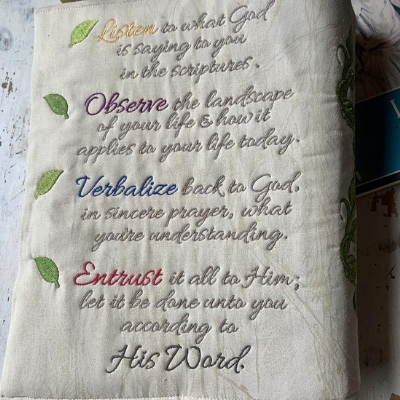 Listen to what God
is saying to you
in the scriptures.
Observe the landscape
of your life & how it
applies to your life today.
Verbalize back to God,
in sincere prayer, what
you're understanding.
Entrust it all to Him;
let it be done unto you
according to
His Word.